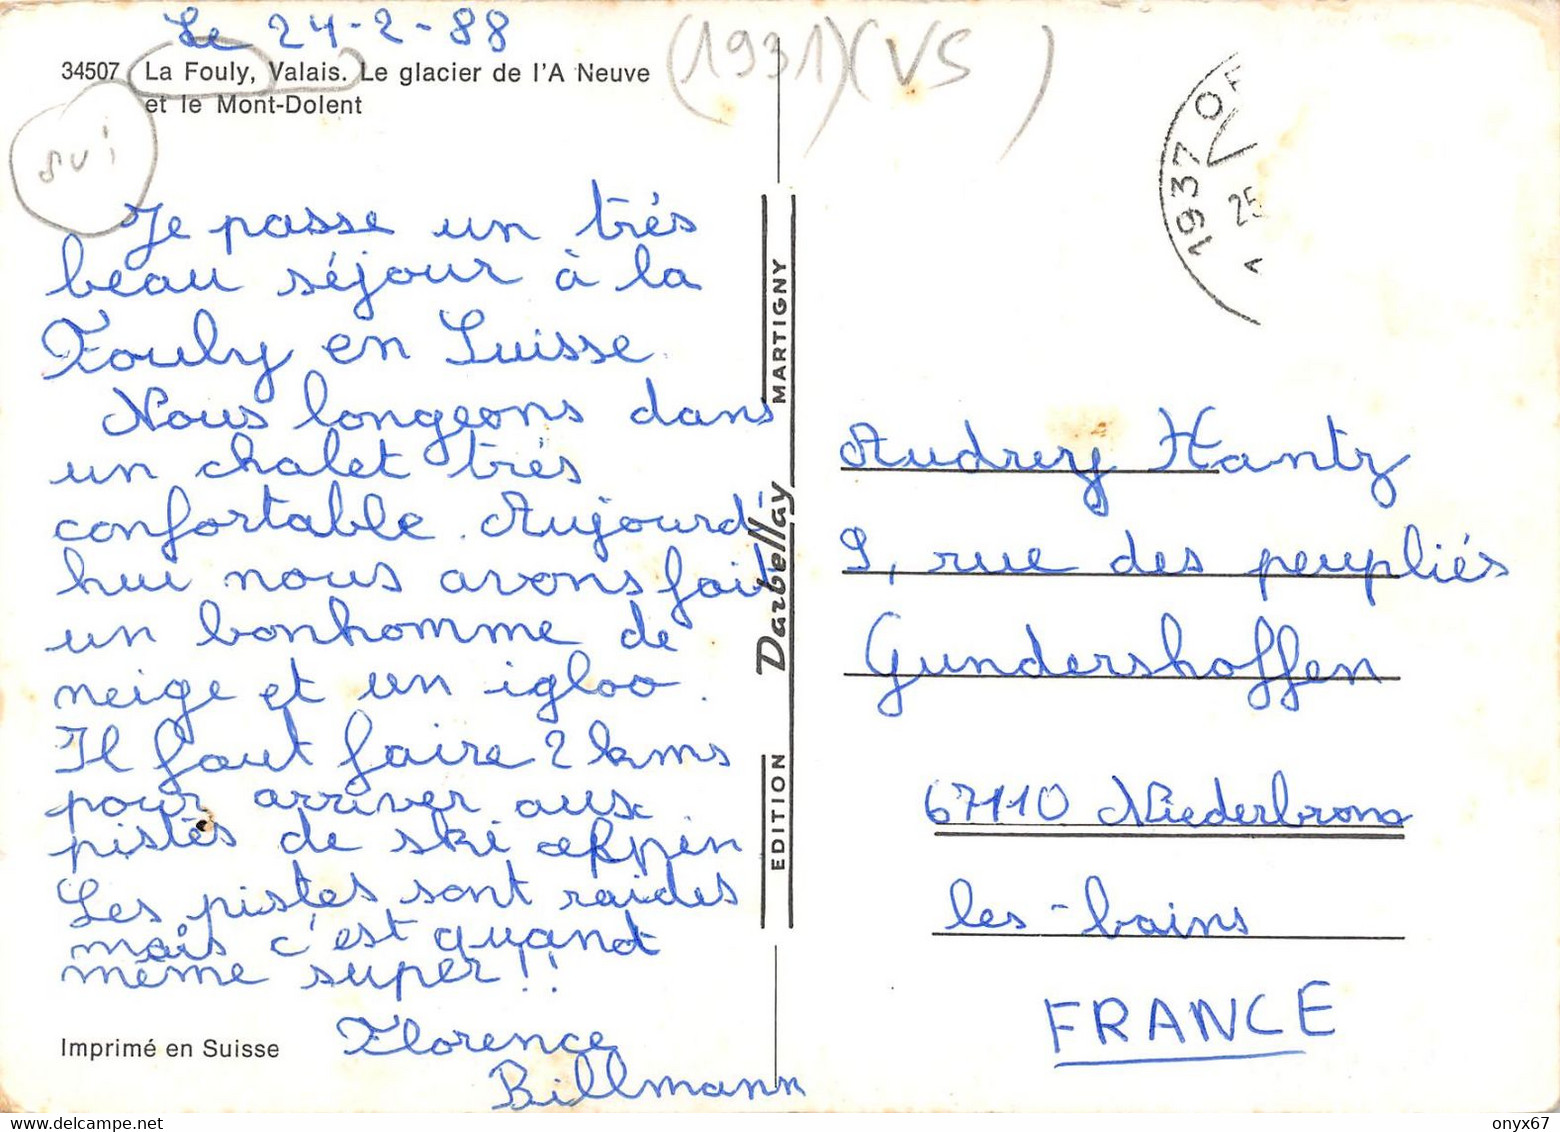 Le 24-2-88
34507 La Fouly, Valais. Le glacier de l'A Neuve
et le Mont-Dolent
(1931) (VS )
sui
Je passe un trés
beau séjour à la
Fouly en Suisse.
Nous longeons dans
un chalet trés
confortable. Aujourd'
hui nous avons fait
un bonhomme de
neige et un igloo.
Il faut faire 2 kms
pour arriver aux
pistes de ski alppin
Les pistes sont raides
mais c'est quand
même super!!
Florence
Billmann
Imprimé en Suisse
EDITION Darbellay MARTIGNY
1937 OR
25
Audrey Hantz
9, rue des peupliés
Gundershoffen
67110 Niederbronn
les-bains
FRANCE
onyx67